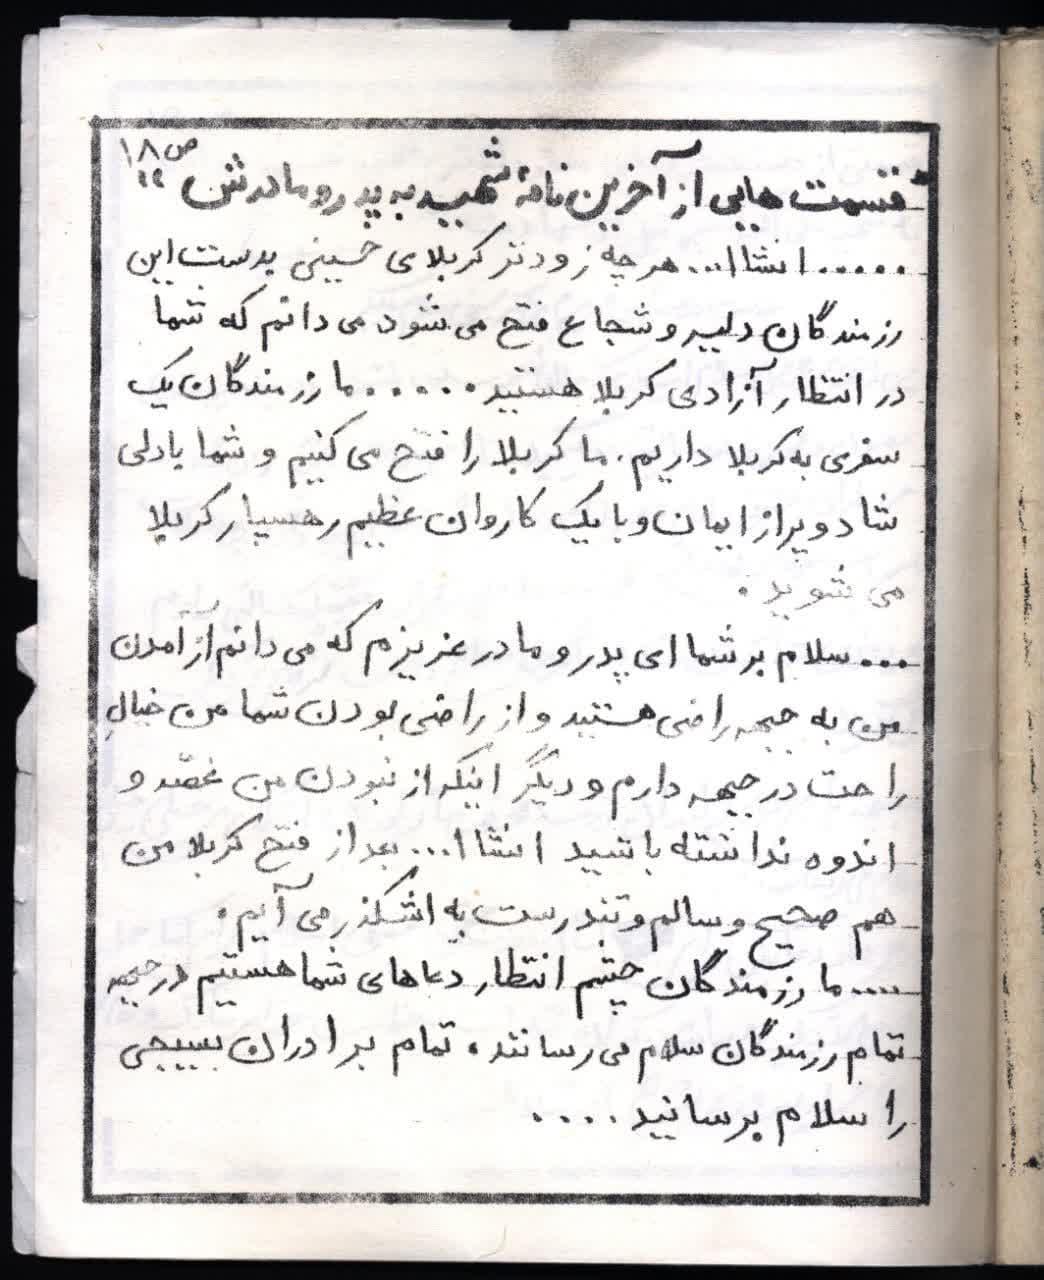 ص ۱۸
قسمت هایی از آخرین نامهٔ شهید به پدر و مادرش
..... انشاا... هر چه زودتر کربلای حسینی بدست این
رزمندگان دلیر و شجاع فتح می شود می دانم که شما
در انتظار آزادی کربلا هستید ..... ما رزمندگان یک
سفری به کربلا داریم. ما کربلا را فتح می کنیم و شما با دلی
شاد و پر از ایمان و با یک کاروان عظیم رهسپار کربلا
می شوید.
... سلام بر شما ای پدر و مادر عزیزم که می دانم از آمدن
من به جبهه راضی هستید و از راضی بودن شما من خیالِ
راحت در جبهه دارم و دیگر اینکه از نبودن من غصّه و
اندوه نداشته باشید انشاا... بعد از فتح کربلا من
هم صحیح و سالم و تندرست به اشکذر می آیم.
.... ما رزمندگان چشم انتظار دعاهای شما هستیم در جبهه
تمام رزمندگان سلام می رسانند. تمام برادران بسیجی
را سلام برسانید ....